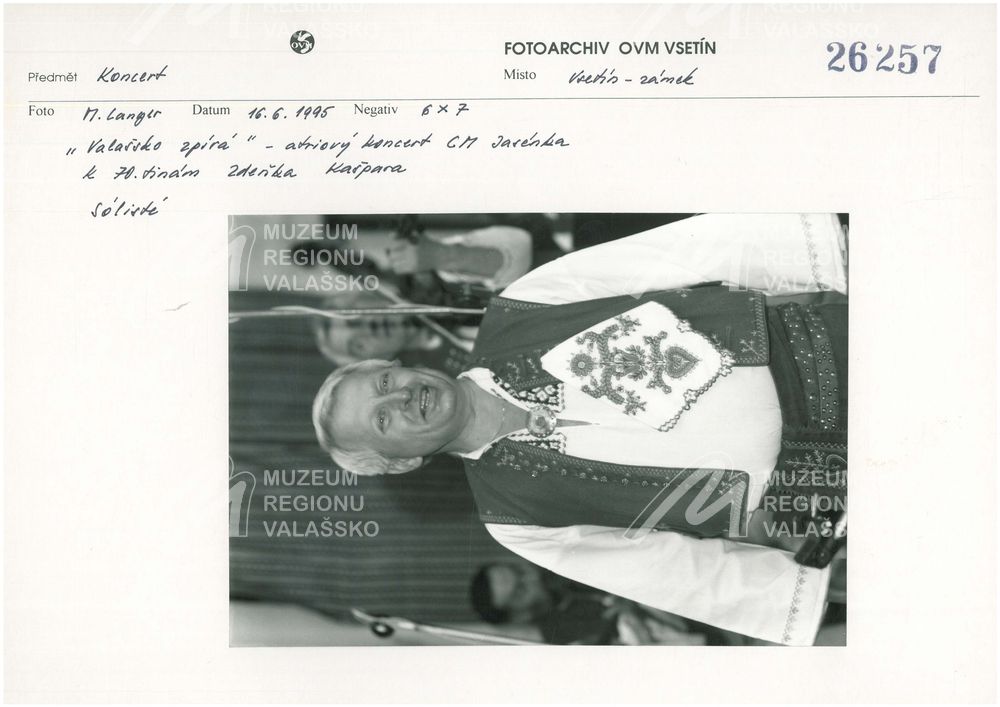 MUZEUM
REGIONU
VALAŠSKO
OVM
FOTOARCHIV OVM VSETÍN
26257
Předmět Koncert
Místo Vsetín - zámek
Foto M. Langer Datum 16. 6. 1995 Negativ 6 x 7
„Valašsko zpívá" - atriový koncert CM Jasénka
k 70. tinám Zdeňka Kašpara
Sólisté
MUZEUM
REGIONU
VALAŠSKO
MUZEUM
REGIONU
VALAŠSKO
MUZEUM
REGIONU
VALAŠSKO
MUZEUM
REGIONU
VALAŠSKO